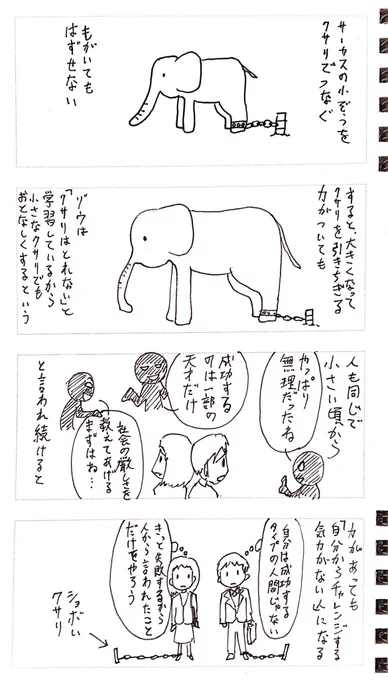 サーカスの小ぞうを
クサリでつなぐ
もがいても
はずせない
すると、大きくなって
クサリを引きちぎる
力がついても
ゾウは
「クサリはとれない」と
学習しているから
小さなクサリでも
おとなしくするという
人も同じで
小さい頃から
やっぱり
無理だったね
成功する
のは一部の
天才だけ
社会の厳しさを
教えてあげる
まずはね…
と言われ続けると
力があっても
「自分からチャレンジする
気力がない人」になる
自分は成功する
タイプの人間じゃない
きっと失敗するから
人から言われたこと
だけをやろう
ショボい
クサリ